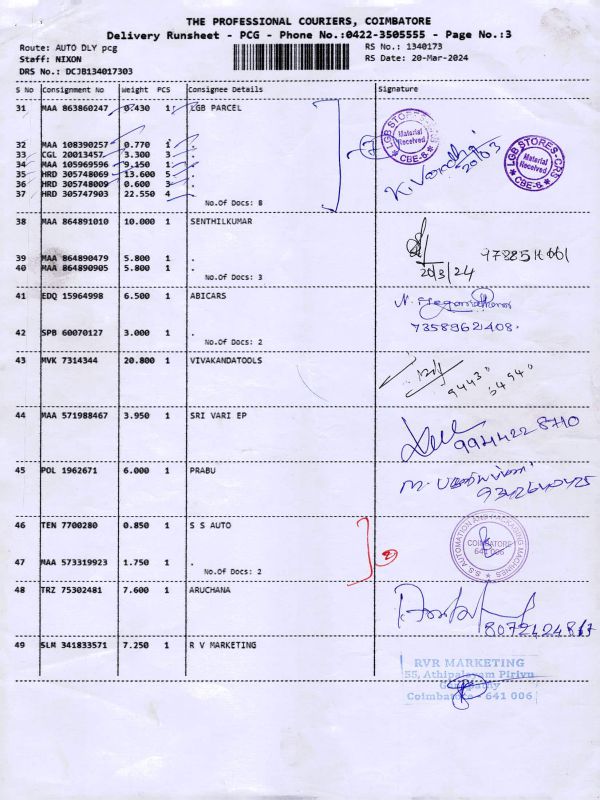 THE PROFESSIONAL COURIERS, COIMBATORE
Delivery Runsheet - PCG - Phone No.:0422-3505555 - Page No.:3
Route: AUTO DLY pcg
RS No.: 1340173
Staff: NIXON
RS Date: 20-Mar-2024
DRS No.: DCJB134017303
S No Consignment No Weight PCS Consignee Details Signature
31 MAA 863860247 0.430 1 LGB PARCEL
32 MAA 108390257 0.770 1 .
33 CGL 20013457 3.300 3 .
34 MAA 105969596 9.150 1 .
35 HRD 305748069 13.600 5 .
36 HRD 305748009 0.600 3 .
37 HRD 305747903 22.550 4 .
No.Of Docs: 8
LGB STORES-CRS
Material Received
CBE-6.
20/03
LGB STORES-CRS
Material Received
CBE-6.
38 MAA 864891010 10.000 1 SENTHILKUMAR
39 MAA 864890479 5.800 1 .
40 MAA 864890905 5.800 1 .
No.Of Docs: 3
20/3/24
41 EDQ 15964998 6.500 1 ABICARS
42 SPB 60070127 3.000 1 .
No.Of Docs: 2
7358962408.
43 MVK 7314344 20.800 1 VIVAKANDATOOLS
44 MAA 571988467 3.950 1 SRI VARI EP
9944228710
45 POL 1962671 6.000 1 PRABU
46 TEN 7700280 0.850 1 S S AUTO
47 MAA 573319923 1.750 1 .
No.Of Docs: 2
2
S.S AUTOMATION AND PACKAGING MACHINES
COIMBATORE
641 006
48 TRZ 75302481 7.600 1 ARUCHANA
49 SLM 341833571 7.250 1 R V MARKETING
RVR MARKETING
55, Athipalayam Pirivu
Coimbatore - 641 006